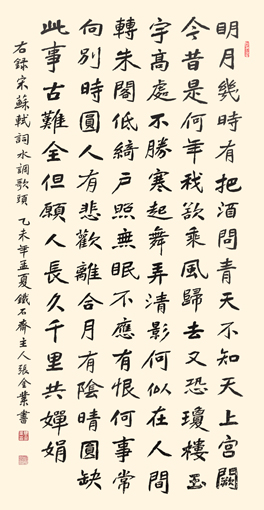 明月幾時有把酒問青天不知天上宮闕
今昔是何年我欲乘風歸去又恐瓊樓玉
宇高處不勝寒起舞弄清影何似在人間
轉朱閣低綺戶照無眠不應有恨何事常
向別時圓人有悲歡離合月有陰晴圓缺
此事古難全但願人長久千里共嬋娟
右錄宋蘇軾詞水調歌頭 乙未年孟夏鐵石齋主人張業書